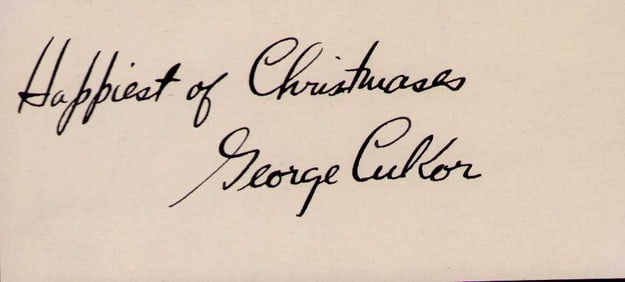 Happiest of Christmases
George Cukor